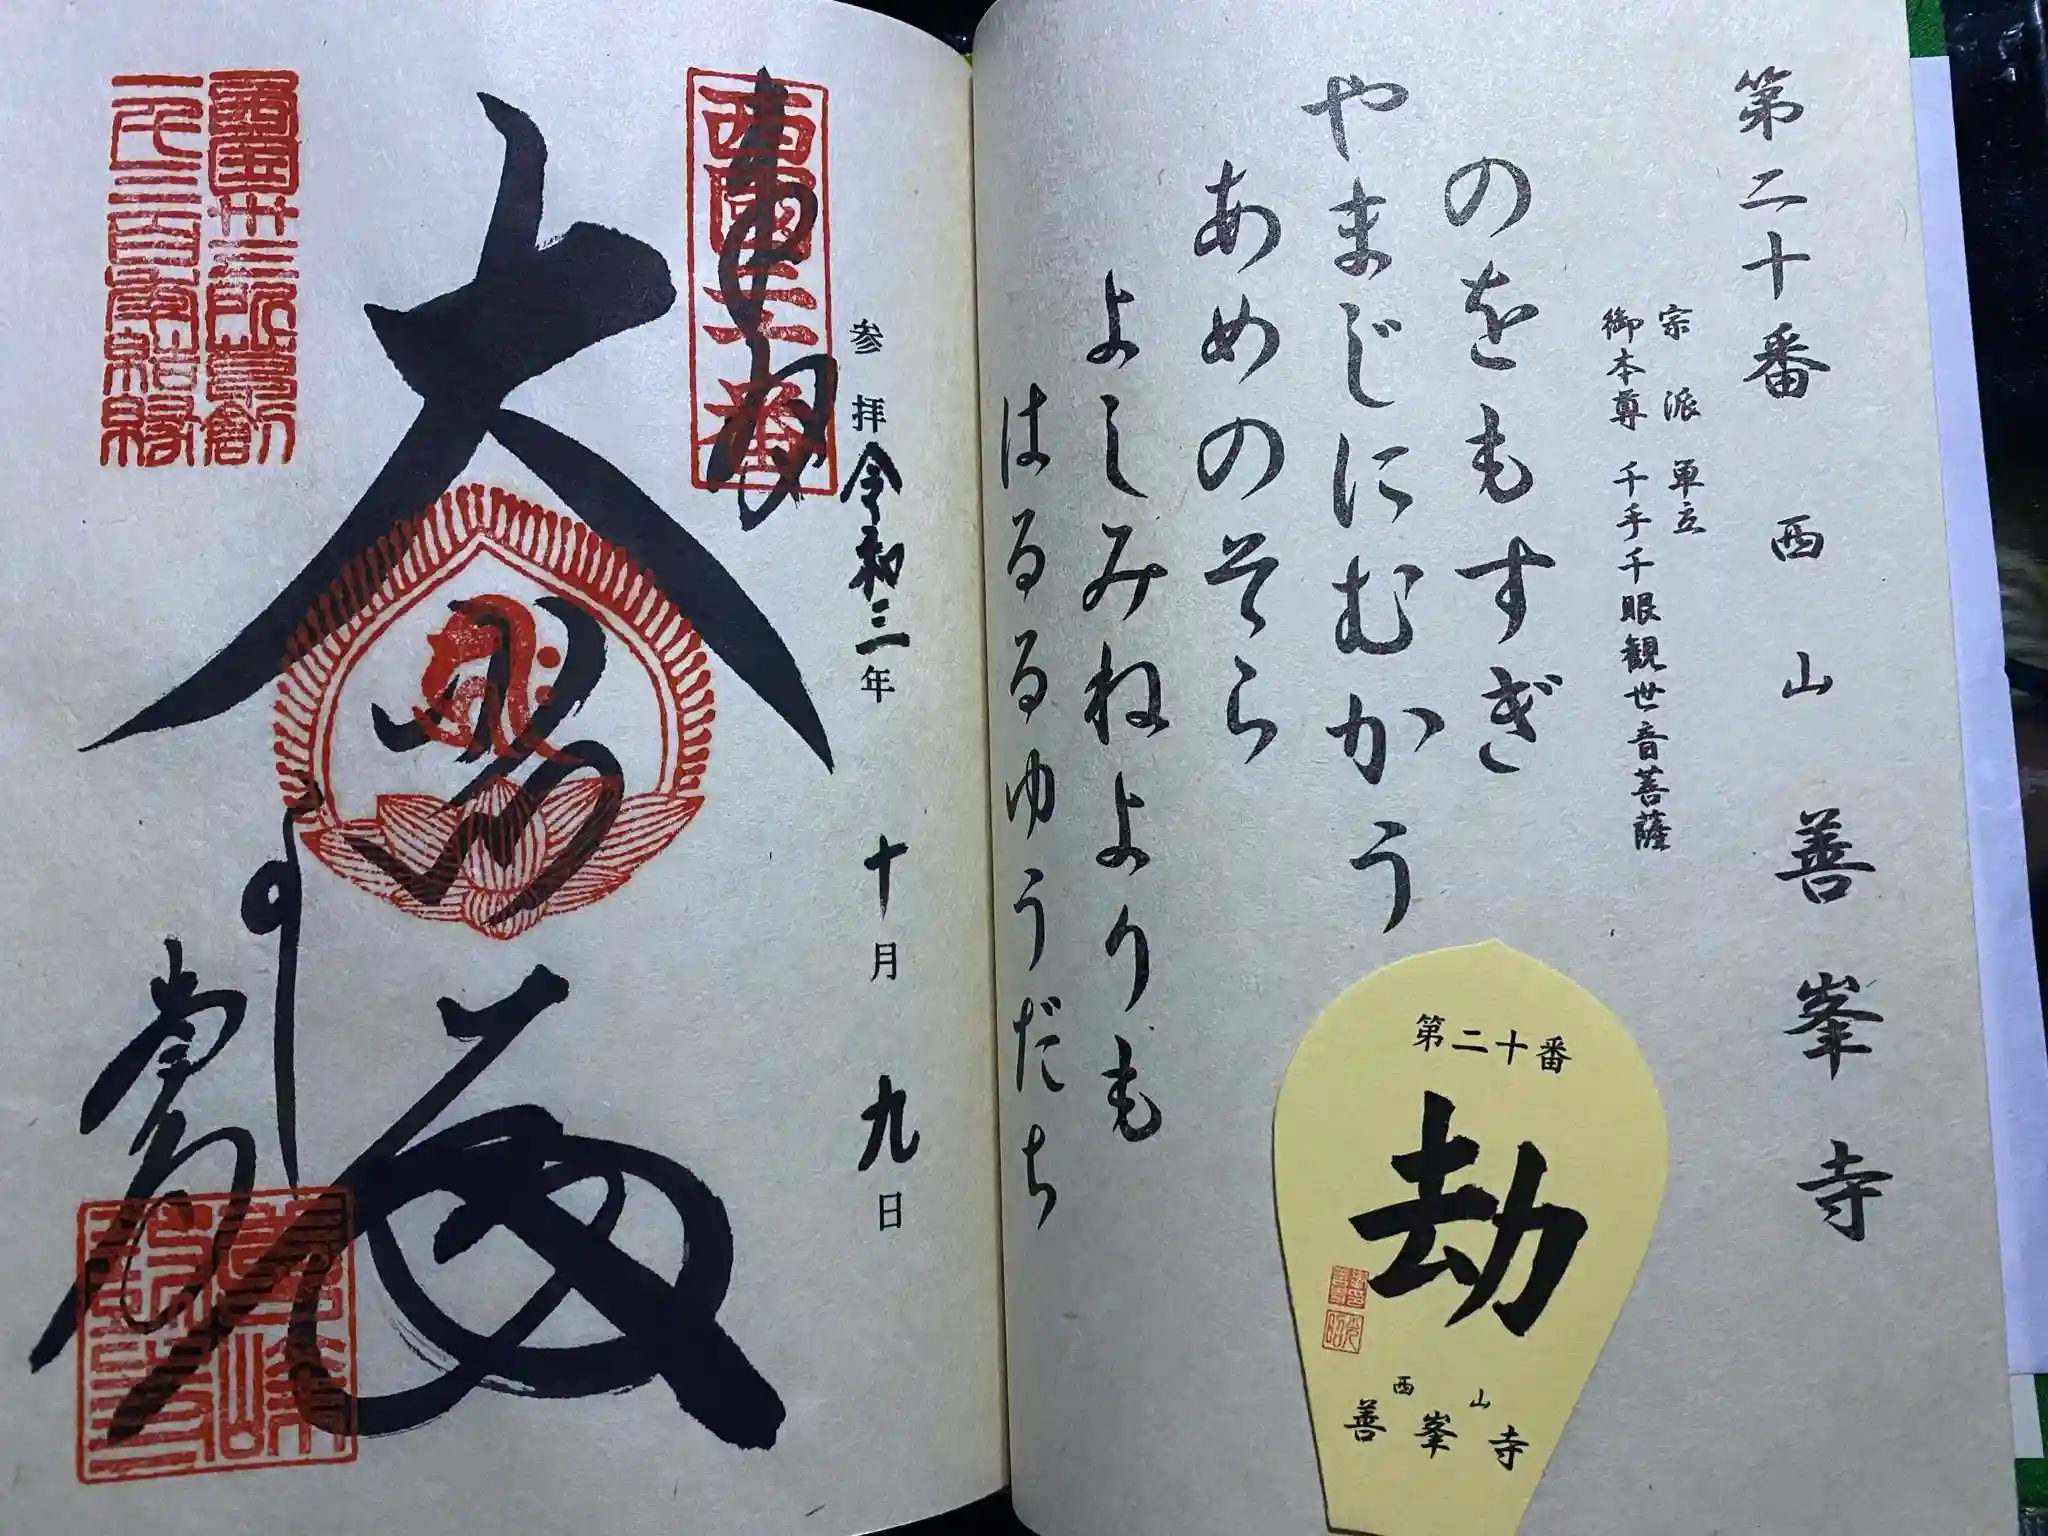 第二十番 西山 善峯寺
宗派 単立
御本尊 千手千眼観世音菩薩
のをもすぎ
やまじにむかう
あめのそら
よしみねよりも
はるるゆうだち
第二十番
劫
西山
善峯寺
参拝 令和三年 十月 九日
西國二十番
大悲
西國三十三所草創
一千三百年結縁
善峯寺